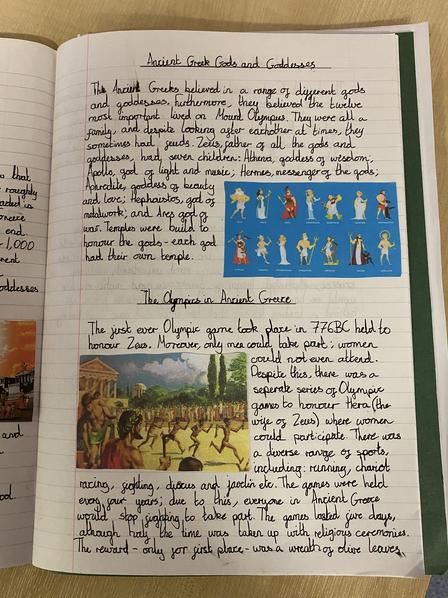 Ancient Greek Gods and Goddesses
The Ancient Greeks believed in a range of different gods
and goddesses. Furthermore, they believed the twelve
most important lived on Mount Olympus. They were all a
family, and despite looking after eachother at times, they
sometimes had feuds. Zeus, father of all the gods and
goddesses, had seven children: Athena, goddess of wisdom;
Apollo, god of light and music; Hermes, messenger of the gods;
Aphrodite, goddess of beauty
and love; Hephaistos, god of
metalwork; and Ares god of
war. Temples were build to
honour the gods - each god
had their own temple.
The Olympics in Ancient Greece
The first ever Olympic game took place in 776BC held to
honour Zeus. Moreover, only men could take part; women
could not even attend.
Despite this, there was a
seperate series of Olympic
games to honour Hera (the
wife of Zeus) where women
could participate. There was
a diverse range of sports,
including: running, chariot
racing, fighting, discus and javelin etc. The games were held
every four years; due to this, everyone in Ancient Greece
would stop fighting to take part. The games lasted five days,
although half the time was taken up with religious ceremonies.
The reward - only for first place - was a wreath of olive leaves.
s that
roughly
end.
1,000
oddesses
and